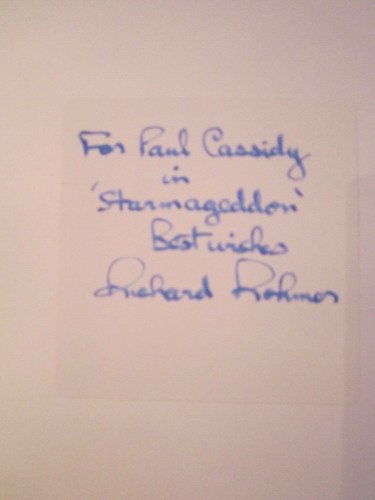 For Paul Cassidy
in
'Starmageddon'
Best wishes
Richard Rohmer